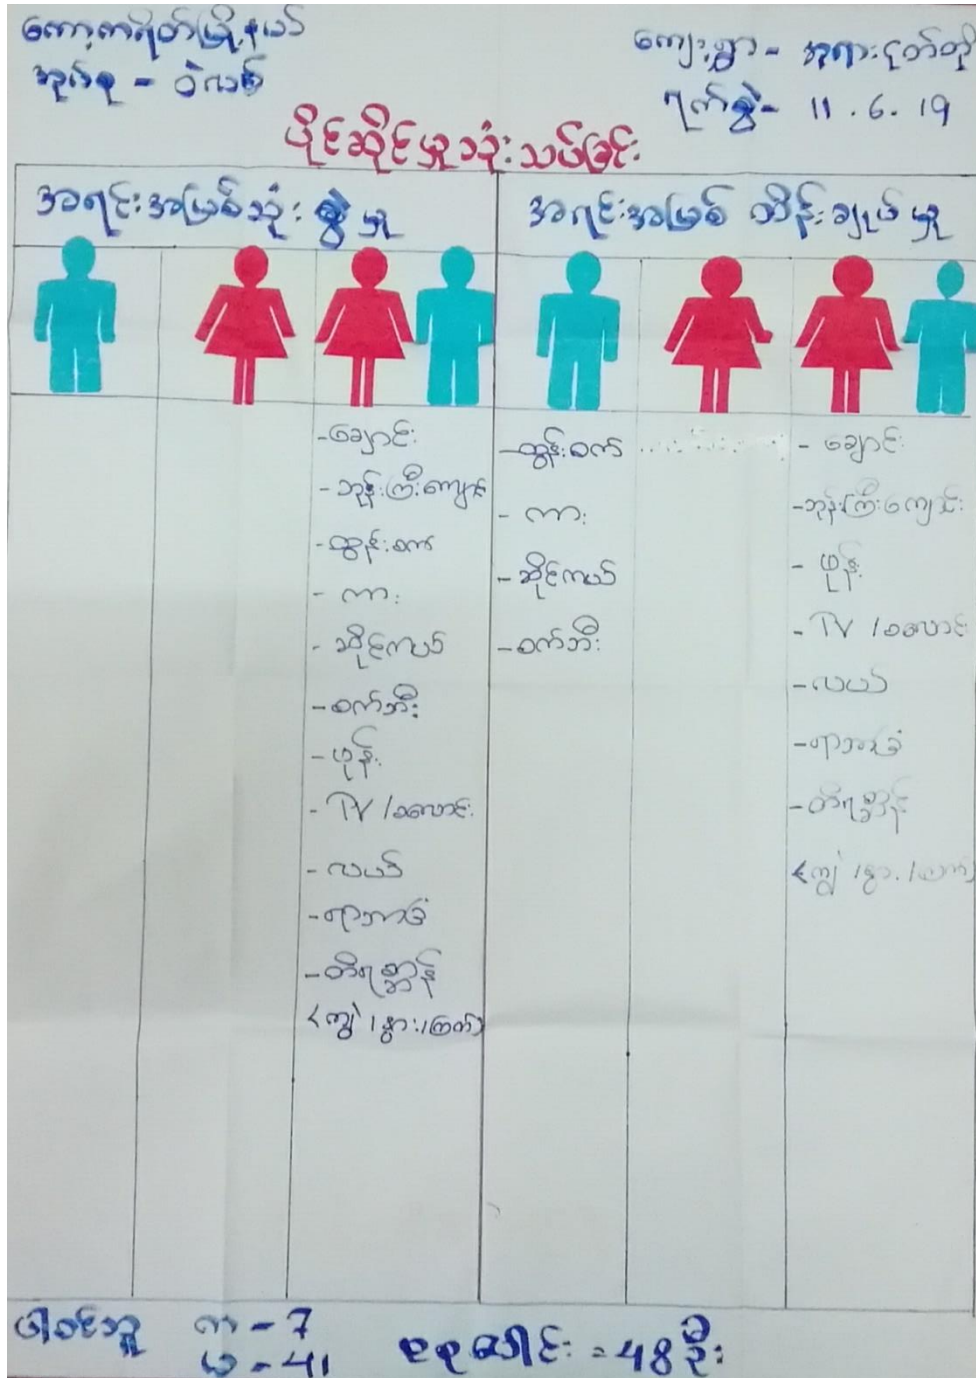 ကော့ကရိတ်မြို့နယ်
အုပ်စု - ဝဲလစ်
ကျေးရွာ - ဘုရားငုတ်တို
ရက်စွဲ - 11 . 6 . 19
ပိုင်ဆိုင်မှုသုံးသပ်ခြင်း
အရင်းအမြစ်သုံးစွဲမှု
အရင်းအမြစ် ထိန်းချုပ်မှု
-ချောင်း
-ဘုန်းကြီးကျောင်း
-ထွန်းစက်
- ကား
- ဆိုင်ကယ်
-စက်ဘီး
-ဖုန်း
- TV /အလောင်း
-လယ်
-ရာဘာခြံ
-တိရစ္ဆာန်
<ကျွဲ / နွား / ကြက်>
-ထွန်းစက်
- ကား
-ဆိုင်ကယ်
-စက်ဘီး
- ချောင်း
-ဘုန်းကြီးကျောင်း
- ဖုန်း
- TV /အလောင်း
-လယ်
-ရာဘာခြံ
-တိရစ္ဆာန်
<ကျွဲ / နွား / ကြက်>
ပါဝင်သူ ကျ - 7
မ - 41
စုစုပေါင်း = 48 ဦး